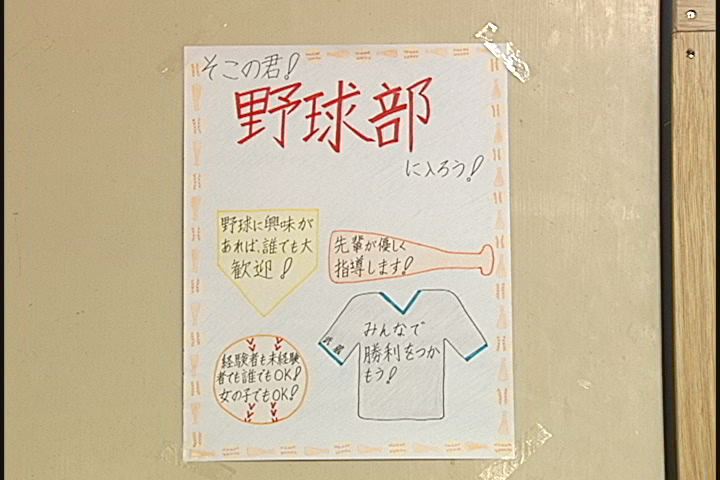 そこの君!
野球部
に入ろう!
野球に興味が
あれば、誰でも大
歓迎!
先輩が優しく
指導します!
みんなで
勝利をつか
もう!
経験者も未経験
者でも誰でもOK!
女の子でもOK!